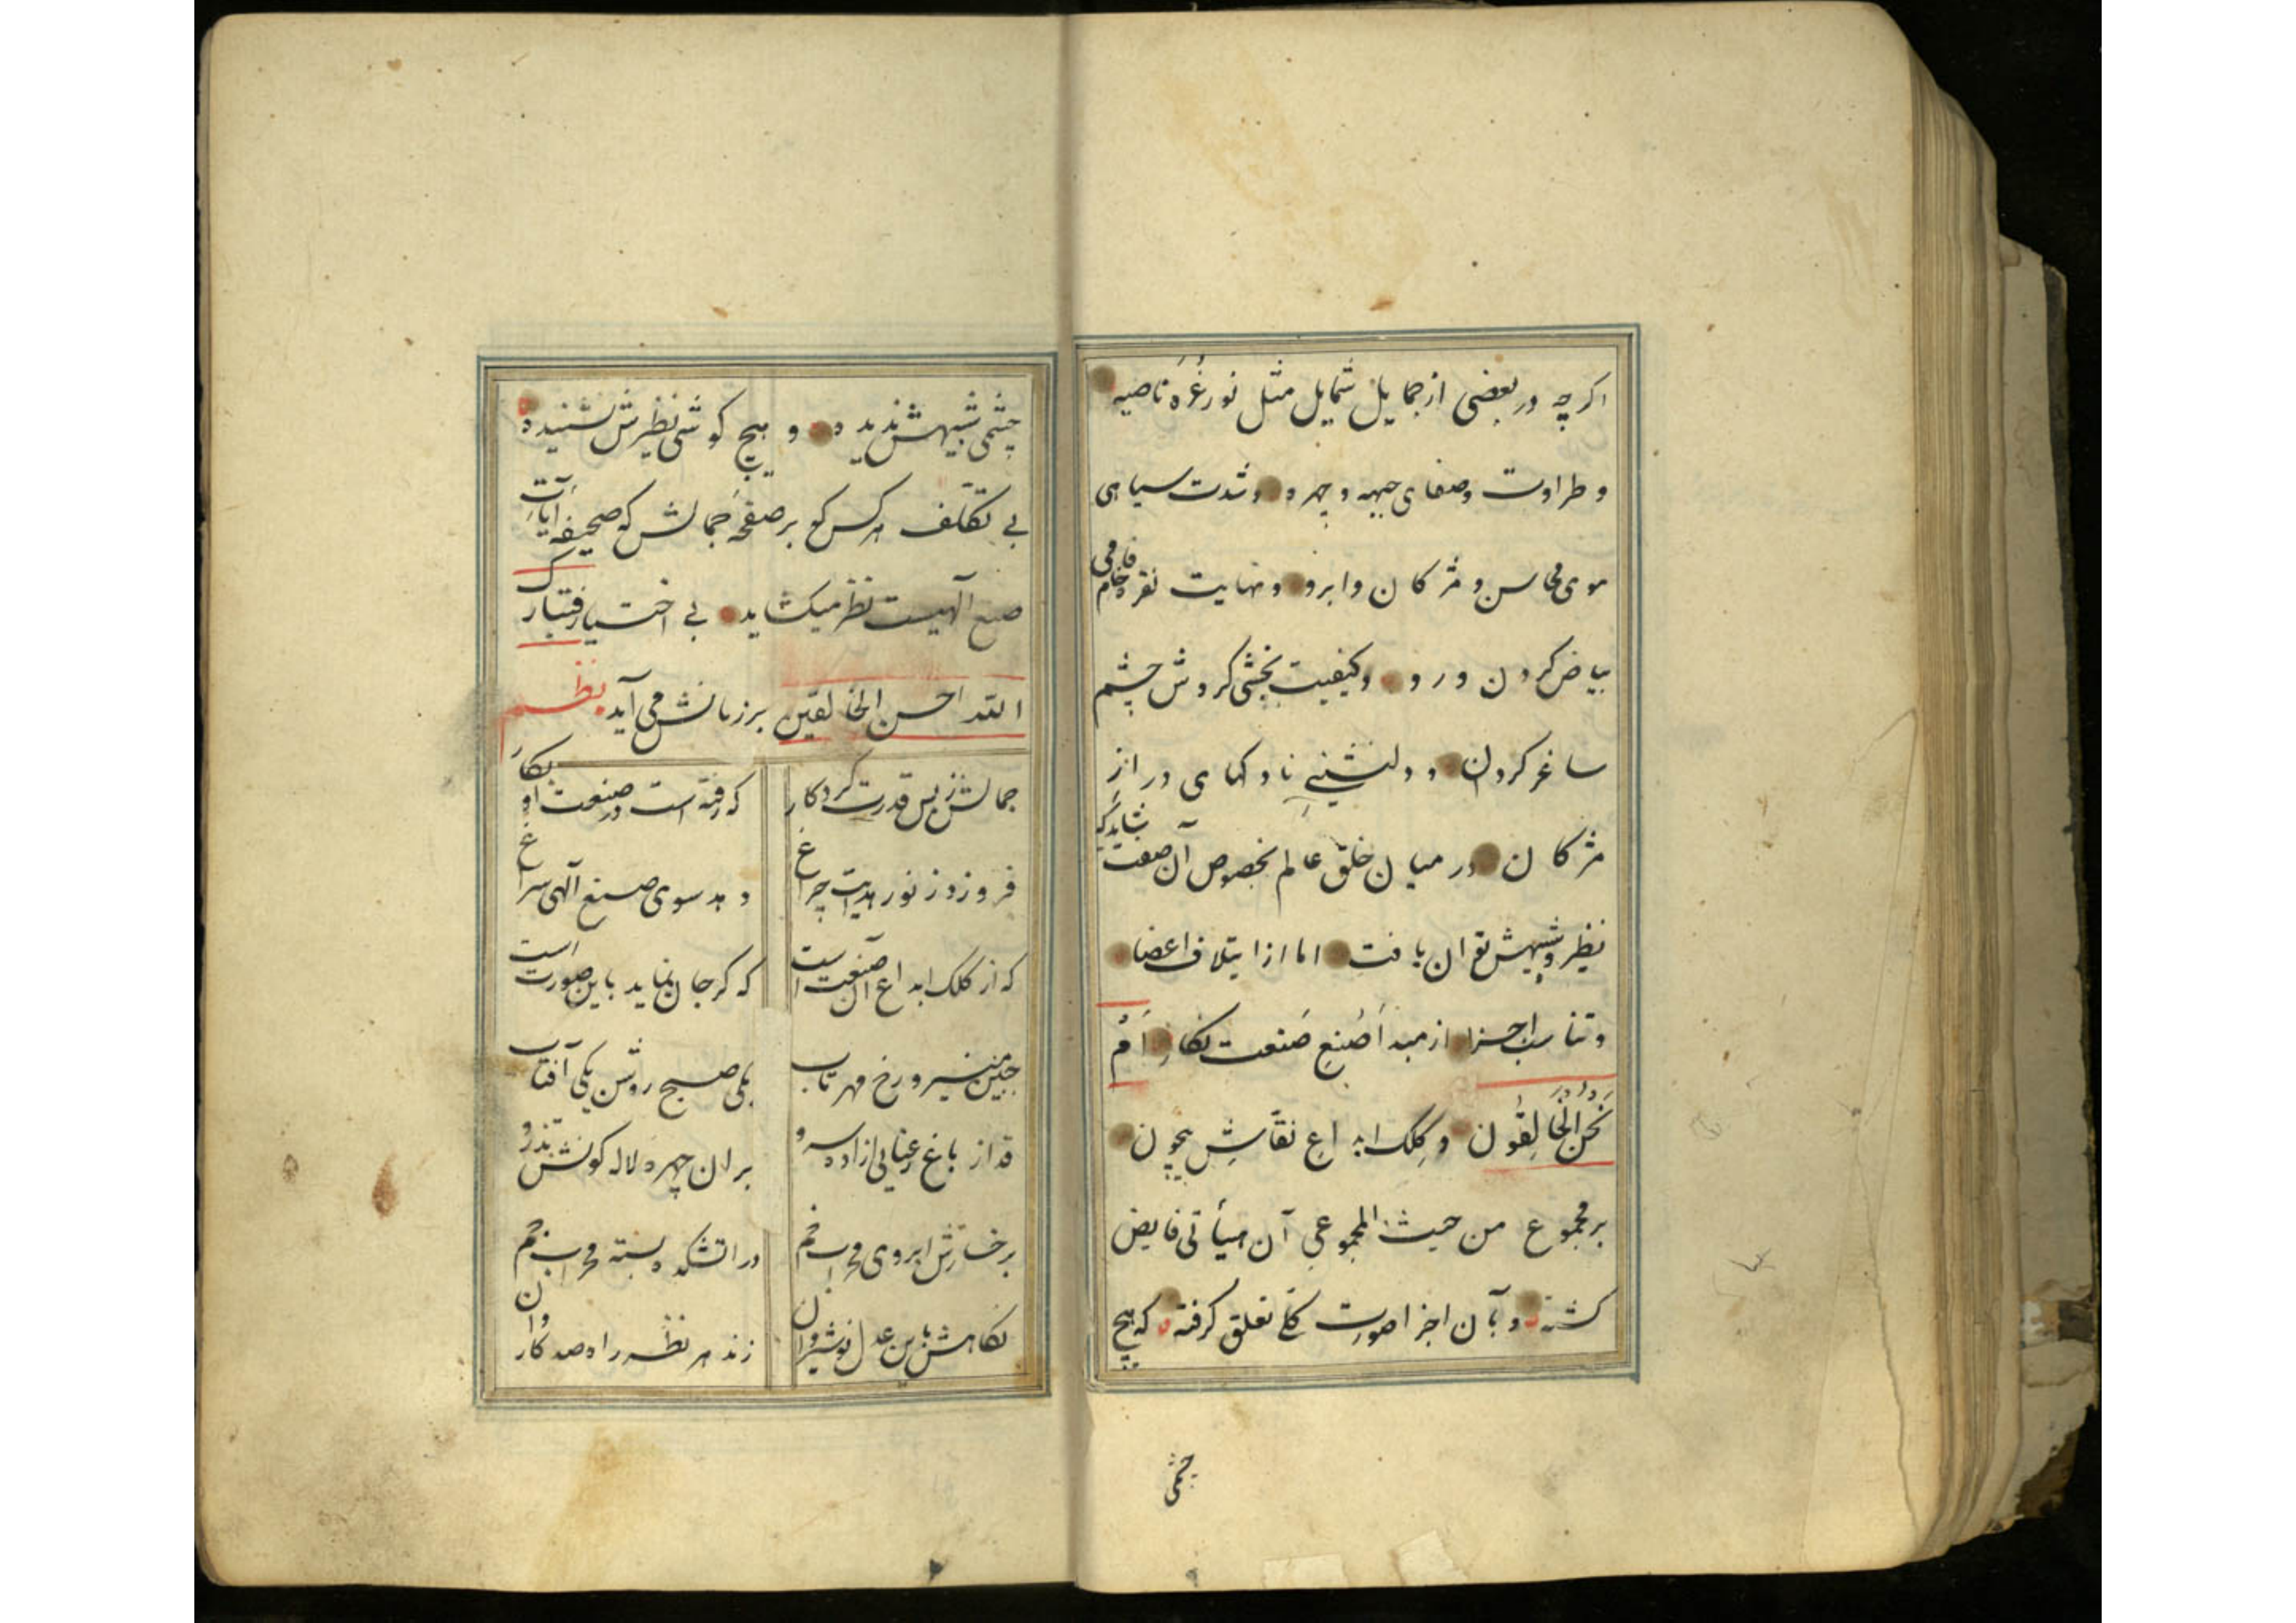 اکرچه در بعضی از جمایل شمایل مثل نور غُرَه ناصیه
و طراوت و صفای جبهه و چهره و شدت سیاهی
موی محاسن و مژکان و ابرو و نهایت نقره خامی
بیاض کردن و رو و کیفیت بخشی کردش چشم
ساغر کردان و دلنشینی ناوکهای دراز
مژکان در میان خلق عالم بخصوص آن صفت شاید که
نظیر و شبیهش توان یافت اما از ایتلاف اعضا
و تناسب اجزا از مبدأ صُنعِ صَنعت نکارِ اَمْ
نَحْنُ الْخَالِقُون و کِلک ابداعِ نقّاشِ بیچون
بر مجموع من حیث المجموعی آن هیأتی فایض
کشته و بآن اجزا صورت کلی تعلق کرفته که هیچ
چشمی
چشمی شبیهش ندیده و هیچ کوشی نظیرش نشنیده
بی تکلّف هر کس که بر صفحهٔ جمالش که صحیفه آیات
صنع آلهیست نظر میکشاید بی اختیار فتبارک
الله احسن الخالقین بر زبانش می آید نظم
جمالش ز بس قدرت کردکار که رفته است در صنعت او بکار
فروزد ز نور هدایت چراغ دهد سوی صنع آلهی سراغ
که از کلک ابداع آن صنعت است که کر جان نماید باین صورت است
جبین منیر و رخ مهر تاب یکی صبح روشن یکی آفتاب
قد از باغ رعنایی ازاده سرو بران چهره لاله کونش تذرو
برخسارش ابروی محراب خم در اتشکده بسته محراب خم
نکاهش باین عدل نوشیروان زند هر نظر راه صد کاروان